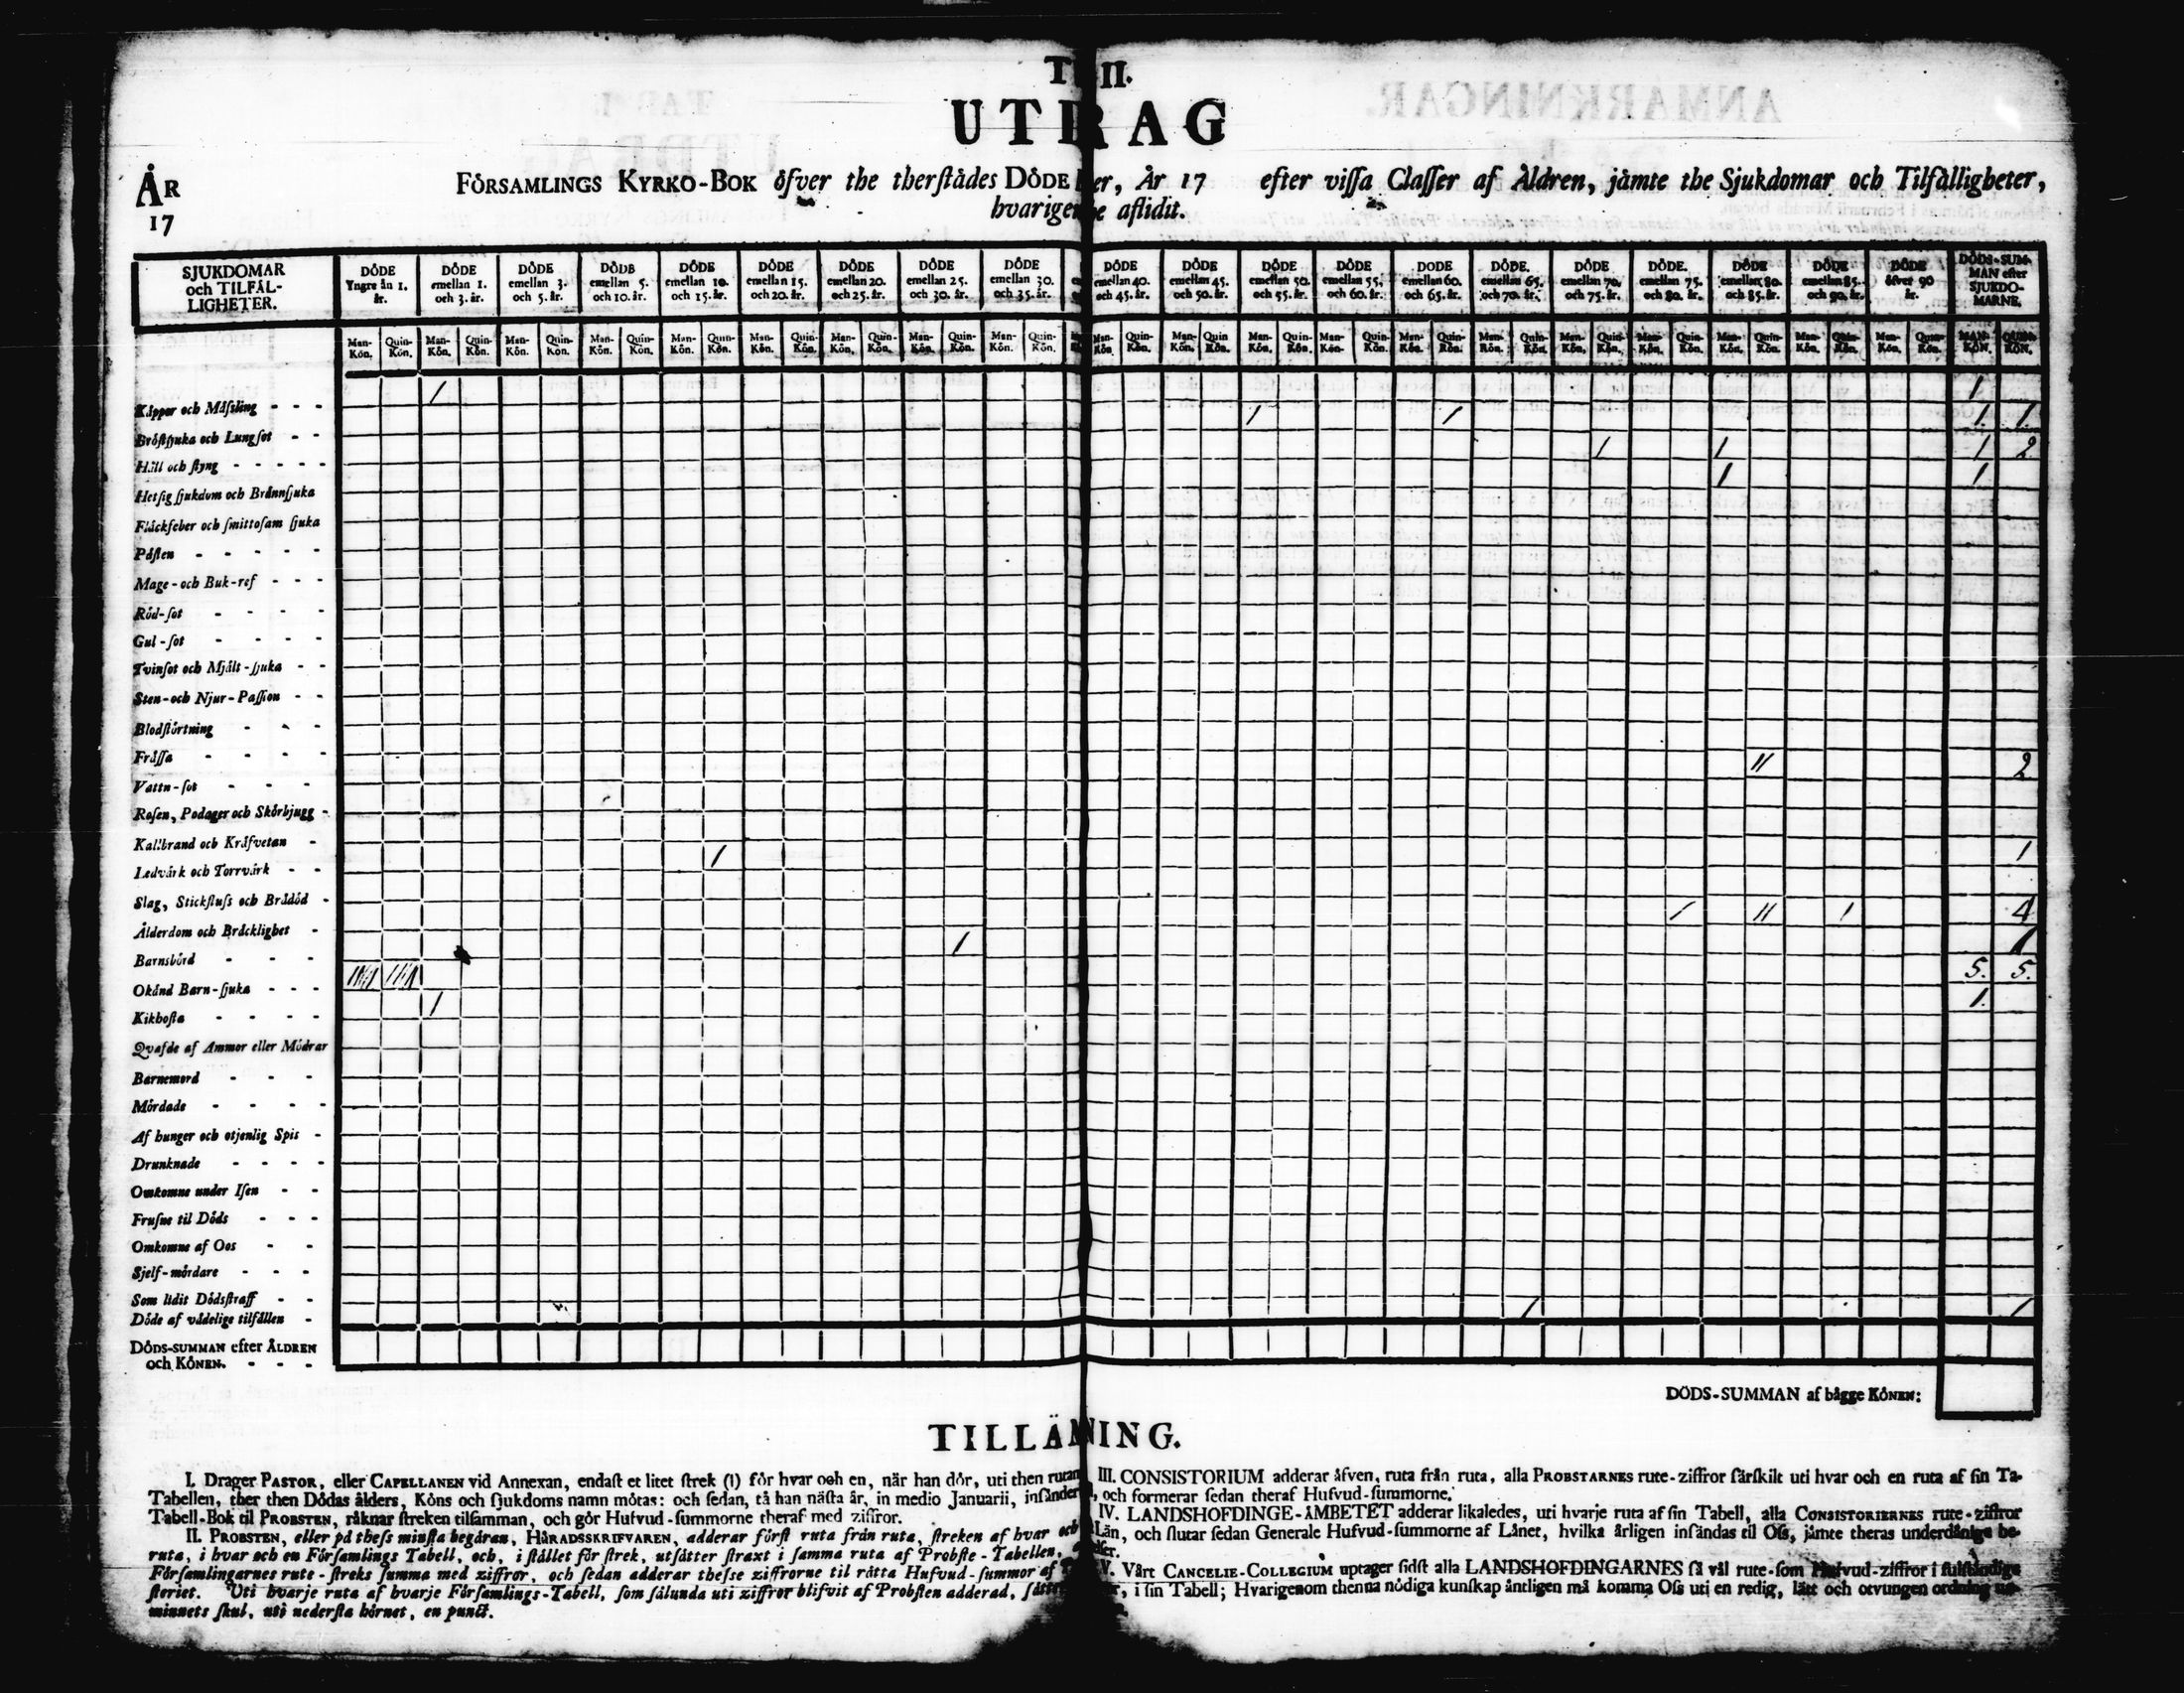 T II.
UTRAG
ÅR
17
FÖRSAMLINGS KYRKO-BOK öfver the therstädes DÖDE er, År 17 efter vissa Classer af Åldren, jämte the Sjukdomar och Tilfälligheter,
hvarige e aflidit.
SJUKDOMAR och TILFÄL-LIGHETER.
DÖDE Yngre än 1. år.
DÖDE emellan 1. och 3. år.
DÖDE emellan 3. och 5. år.
DÖDE emellan 5. och 10. år.
DÖDE emellan 10. och 15. år.
DÖDE emellan 15. och 20. år.
DÖDE emellan 20. och 25. år.
DÖDE emellan 25. och 30. år.
DÖDE emellan 30. och 35. år.
DÖDE emellan 40. och 45. år.
DÖDE emellan 45. och 50. år.
DÖDE emellan 50. och 55. år.
DÖDE emellan 55. och 60. år.
DODE emellan 60. och 65. år.
DÖDE. emellan 65. och 70. år.
DÖDE emellan 70. och 75. år.
DÖDE. emellan 75. och 80. år.
DÖDE emellan 80. och 85. år.
DÖDE emellan 85. och 90. år.
DÖDE öfver 90 år.
DÖDS-SUMMAN efter SJUKDOMARNE.
Man-Kön. Quin-Kön. Man-Kön. Quin-Kön. Man-Kön. Quin-Kon. Man-Kön. Quin-Kön. Man-Kön. Quin-Kön. Man-Kön. Quin-Kön. Man-Kön. Quin-Kön. Man-Kön. Quin-Kön. Man-Kön. Quin-Kön. Man-Kön. Quin-Kön. Man-Kön. Quin-Kön. Man-Kön. Quin-Kön. Man-Kön. Quin-Kön. Man-Kön. Quin-Kön. Man-Kön. Quin-Kön. Man-Kön. Quin-Kön. Man-Kön. Quin-Kön. Man-Kön. Quin-Kön. Man-Kön. Quin-Kön. Man-Kön. Quin-Kön. MAN-KÖN. QUIN-KÖN.
Kåppor och Måssling - - - / 1
Bröstsjuka och Lungsot - - / / 1. 1.
Håll och styng - - - - - / / 1 2
Hetsig sjukdom och Brännsjuka / 1
Fläckfeber och smittosam sjuka
Pästen - - - - -
Mage-och Buk-ref - - -
Röd-sot - - - -
Gul-sot - - - -
Tvinsot och Mjält-sjuka - -
Sten-och Njur-Passion - -
Blodstörtning - - -
Frässa - - - -
Vattn-sot - - - // 2
Rosen, Podager och Skörbjugg -
Kallbrand och Kräfvetan -
Ledvärk och Torrvärk - - / 1
Slag, Stickfluss och Brådöd -
Ålderdom och Bräcklighet - / // / 4
Barnsbörd - - - / 1
Okänd Barn-sjuka - - - ///// ///// 5. 5.
Kikhosta - - - - / 1.
Qvafde af Ammor eller Mödrar
Barnemord - - -
Mördade - - - -
Af hunger och otjenlig Spis -
Drunknade - - - -
Omkomne under Isen - -
Frusne til Döds - - -
Omkomne af Oos - -
Sjelf-mördare - - -
Som lidit Dödsstraff - -
Döde af vådelige tilfällen - / 1
DÖDS-SUMMAN efter ÅLDREN
och KÖNEN. - - -
DÖDS-SUMMAN af bägge KÖNEN:
TILLÄNING.
I. Drager PASTOR, eller CAPELLANEN vid Annexan, endast et litet strek (1) för hvar och en, när han dör, uti then rutan
Tabellen, ther then Dödas ålders, Köns och sjukdoms namn mötas: och sedan, tå han nästa år, in medio Januarii, insänder
Tabell-Bok til PROBSTEN, räknar streken tilsamman, och gör Hufvud-summorne theraf med ziffror.
II. PROBSTEN, eller på thess minsta begäran, HÄRADSSKRIFVAREN, adderar först ruta från ruta, streken af hvar och
ruta, i hvar och en Församlings Tabell, och, i stället för strek, utsätter straxt i samma ruta af Probste-Tabellen,
Församlingarnes rute-streks summa med ziffror, och sedan adderar thesse ziffrorne til rätta Hufvud-summor af
steriet. Uti hvarje ruta af hvarje Församlings-Tabell, som sålunda uti ziffror blifvit af Probsten adderad, sätter
minnets skul, uti nedersta hörnet, en punct.
III. CONSISTORIUM adderar äfven, ruta från ruta, alla PROBSTARNES rute-ziffror särskilt uti hvar och en ruta af sin Ta-
, och formerar sedan theraf Hufvud-summorne.
IV. LANDSHOFDINGE-ÄMBETET adderar likaledes, uti hvarje ruta af sin Tabell, alla CONSISTORIERNES rute-ziffror
Län, och slutar sedan Generale Hufvud-summorne af Länet, hvilka årligen insändas til Oss, jämte theras underdånige be-
elser.
V. Vårt CANCELIE-COLLEGIUM uptager sidst alla LANDSHOFDINGARNES så väl rute-som Hufvud-ziffror i fulständige
, i sin Tabell; Hvarigenom thenna nödiga kunskap äntligen må komma Oss uti en redig, lätt och otvungen ordning